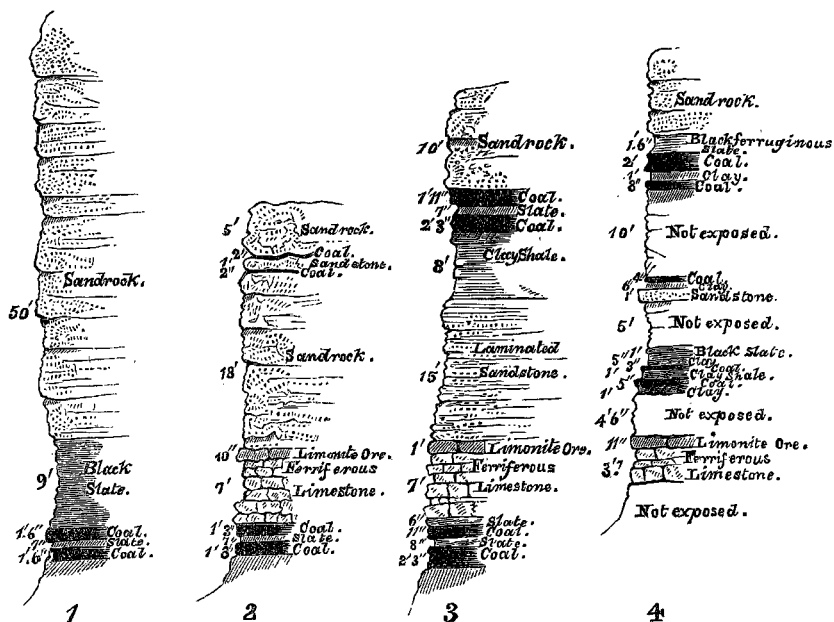 50' Sandrock.
9' Black
Slate.
1'.6" Coal.
7" Slate.
1'.6" Coal.
1
5' Sandrock.
2" Coal.
1' Sandstone.
2" Coal.
18' Sandrock.
10" Limonite Ore.
Ferriferous
7' Limestone.
1'3" Coal.
Slate.
Coal.
2
10' Sandrock.
1'11" Coal.
7" Slate.
2'3" Coal.
8' Clay Shale.
Laminated
15' Sandstone.
1' Limonite Ore.
Ferriferous
7' Limestone.
6" Slate.
11" Coal.
8" Slate.
2'3" Coal.
3
Sandrock.
1'.6" Black ferruginous
Slate.
2' Coal.
1' Clay.
8" Coal.
10' Not exposed.
Coal.
6" Clay.
1' Sandstone.
5' Not exposed.
1' Black Slate.
5" Clay
3" Coal.
1' Clay Shale.
5" Coal.
1' Clay.
4'6" Not exposed.
11" Limonite Ore.
Ferriferous
3'.7 Limestone.
Not exposed.
4